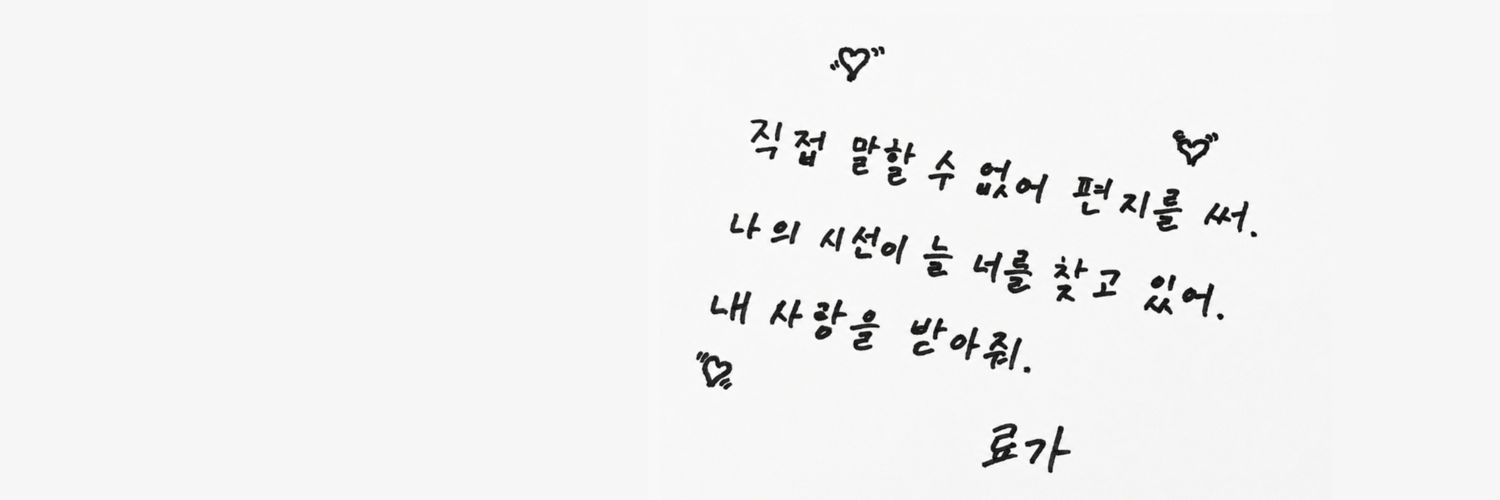 직접 말할 수 없어 편지를 써.
나의 시선이 늘 너를 찾고 있어.
내 사랑을 받아줘.
료가